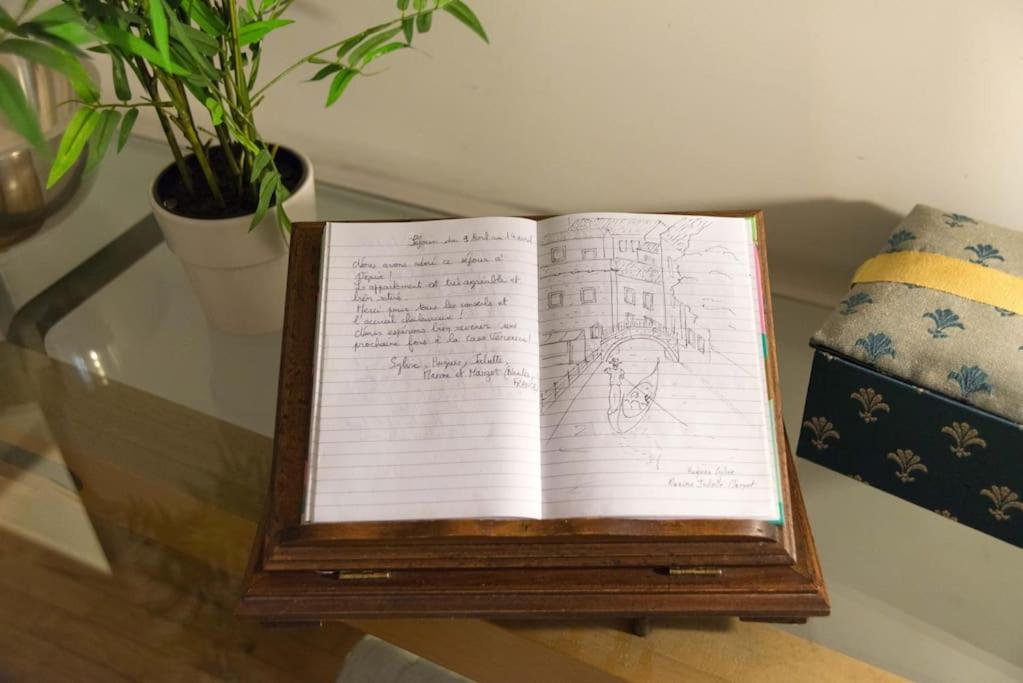 Séjour du 9 avril au 14 avril
Nous avons adoré ce séjour à
Venise !
L'appartement est très agréable et
bien situé.
Merci pour tous les conseils et
l'accueil chaleureux !
Nous espérons bien revenir une
prochaine fois à la Casa
Sylvie, Hugues, Juliette,
Maxime et Margot (Nantes,
FRANCE
Hugues Sylvie
Maxime Juliette Margot